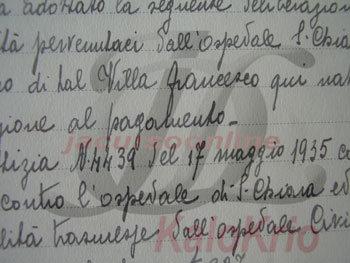 a adottato la seguente deliberazion
ità pervenutaci dall'ospedale S. Chiar
o di tal Villa Francesco qui nat
zione al pagamento-
tizia N. 4439 del 17 maggio 1935 co
contro l'ospedale di S. Chiara ed
lità trasmesse dall'ospedale Civi